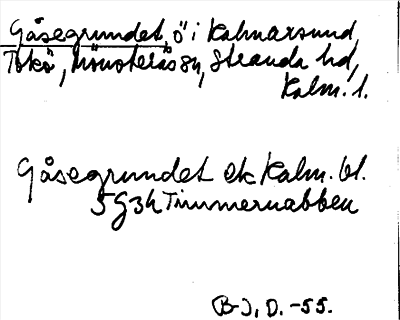 Gåsegrundet, ö i Kalmarsund,
Tokö, Mönsterås sn, Stranda hd,
Kalm. l.
Gåsegrundet ek Kalm. bl.
5G3h Timmernabben
B-J, D. -55.